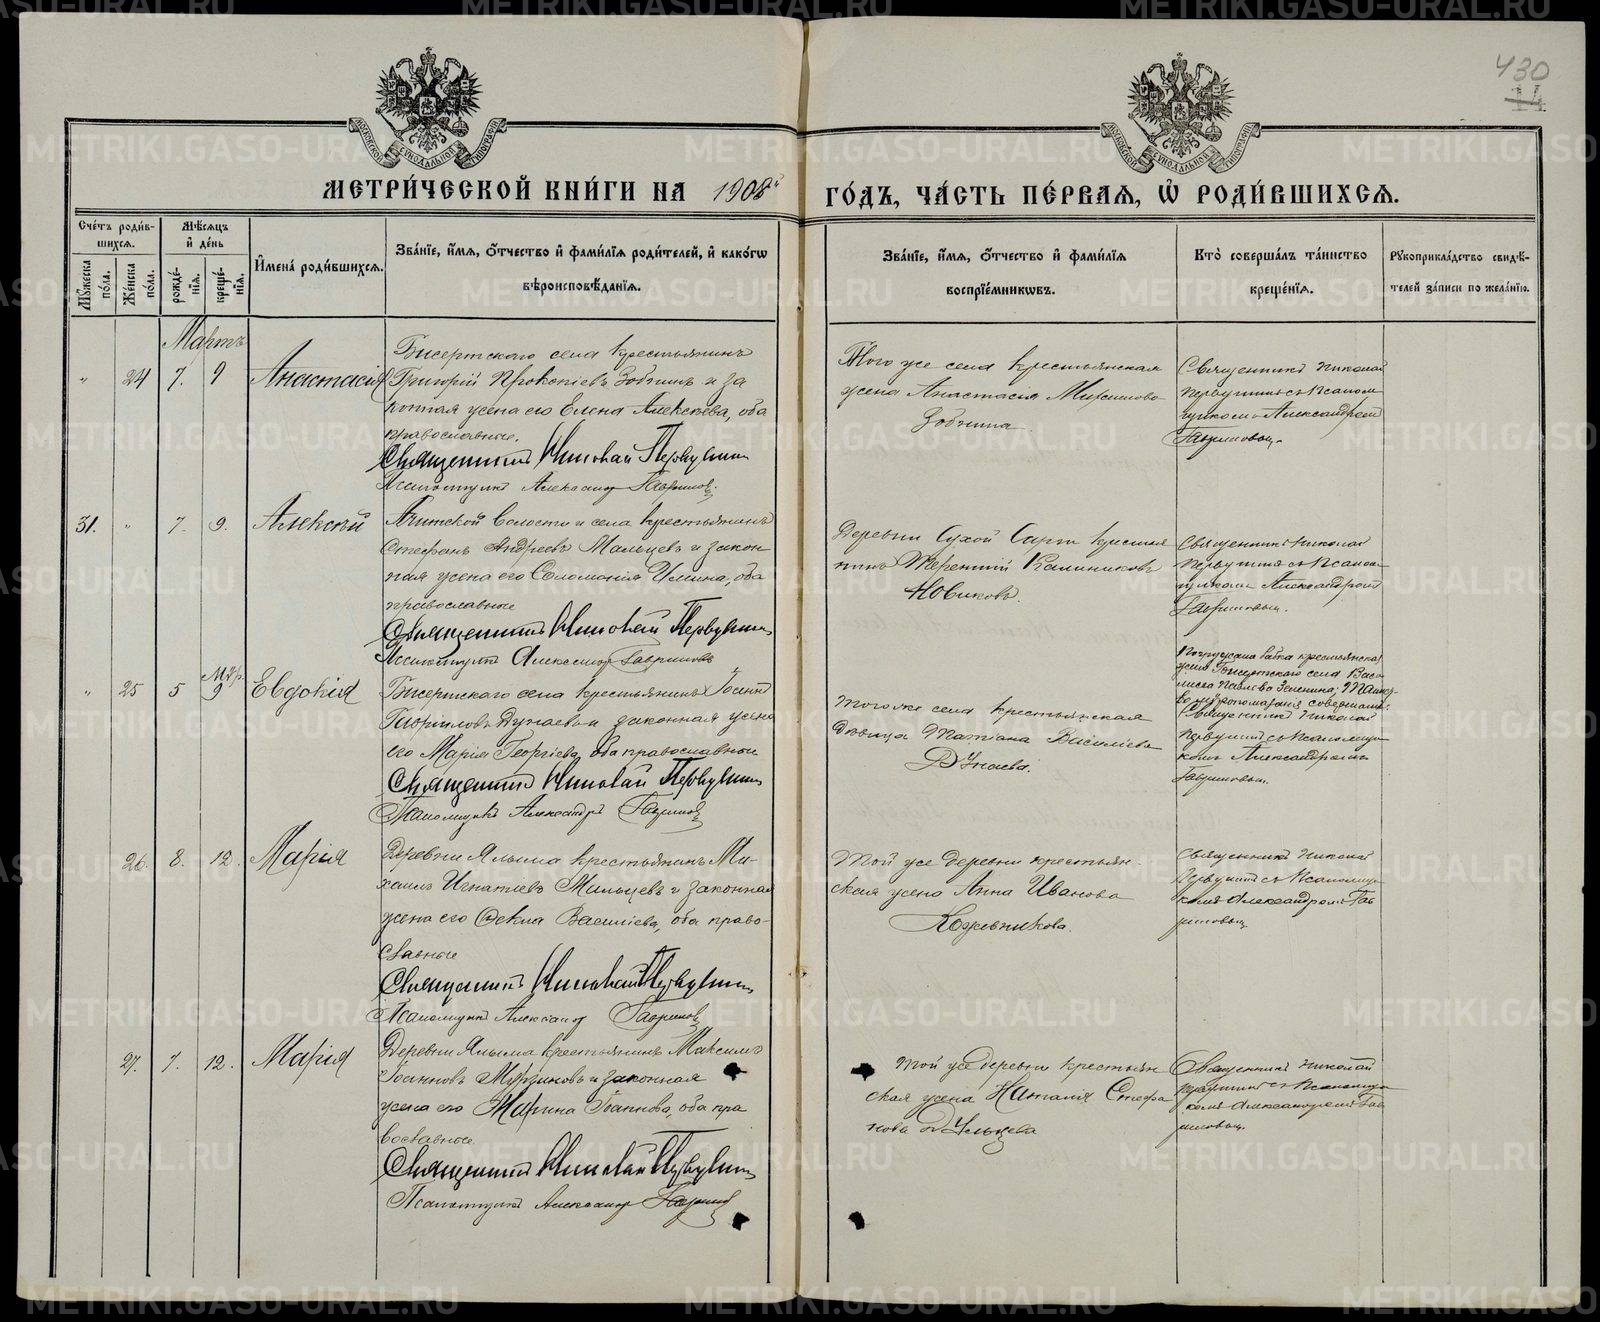 430
14
МЕТРИЧЕСКОЙ КНИГИ НА 1908й ГОДЪ, ЧАСТЬ ПЕРВАЯ, Ѡ РОДИВШИХСЯ.
Счетъ родив-
шихся.
Мужеска пола.
Женска пола.
Мѣсяцъ
и день
рождѐнія.
крещенія.
Имена родившихся.
Званіе, имя, отчество и фамилія родителей, и какогѡ
вѣроисповѣданія.
Званіе, имя, отчество и фамилія
воспріемникѡвъ.
Кто совершалъ таинство
крещенія.
Рукоприкладство свидѣ-
телей записи по желанію.
Мартъ
24 7. 9 Анастасія
Бисертскаго села крестьянинъ
Григорій Прокопіевъ Зобнинъ и за
конная жена его Елена Алексѣева, оба
православные.
Священникъ Николай Первушинъ
Псаломщикъ Александръ Гавриловъ.
Того же села крестьянская
жена Анастасія
Зобнина
Священникъ Николай
Первушинъ съ Псалом
щикомъ Александромъ
Гавриловым.
31. " 7. 9. Алексѣй
Ачитской волости и села крестьянинъ
Стефанъ Андреевъ Мальцевъ и закон
ная жена его Соломонія Ильина, оба
православные
Священникъ Николай Первушинъ
Псаломщикъ Александръ Гавриловъ
Деревни Сухой Сарги крестья
нинъ Терентій Калиниковъ
Новиковъ.
Священникъ Николай
Первушинъ съ Псалом
щикомъ Александромъ
Гавриловым.
" 25 5 Мар. 9 Евдокія
Бисертскаго села крестьянинъ Іоаннъ
Гавриловъ Дунаевъ и законная жена
его Марія Георгіева, оба православные
Священникъ Николай Первушинъ
Псаломщикъ Александръ Гавриловъ
Того же села крестьянская
дѣвица Татіана Василіева
Дунаева.
Погружала бабка крестьянская
жена Бисертскаго села Васи
лиса Павлова
Священникъ Николай
Первушинъ съ Псаломщи
комъ Александромъ
Гавриловым.
26. 8. 12. Марія
Деревни Ялыма крестьянинъ Ми-
хаилъ Игнатіевъ Мальцевъ и законная
жена его Ѳекла Василіева, оба право-
славные
Священникъ Николай Первушинъ
Псаломщикъ Александръ Гавриловъ
Той же деревни крестьян-
ская жена Анна Иванова
Кожевникова.
Священникъ Николай
Первушинъ съ Псаломщи
комъ Александромъ Гав
риловым
27. 7. 12. Марія
Деревни Ялыма крестьянинъ Максимъ
Іоанновъ и законная
жена его Марина Іоаннова, оба пра
вославные.
Священникъ Николай Первушинъ
Псаломщикъ Александръ Гавриловъ
Той же деревни крестьян
ская жена Наталія Стефа
нова
Священникъ Николай
Первушинъ съ Псаломщи
комъ Александромъ Гав
риловым.
METRIKI.GASO-URAL.RU